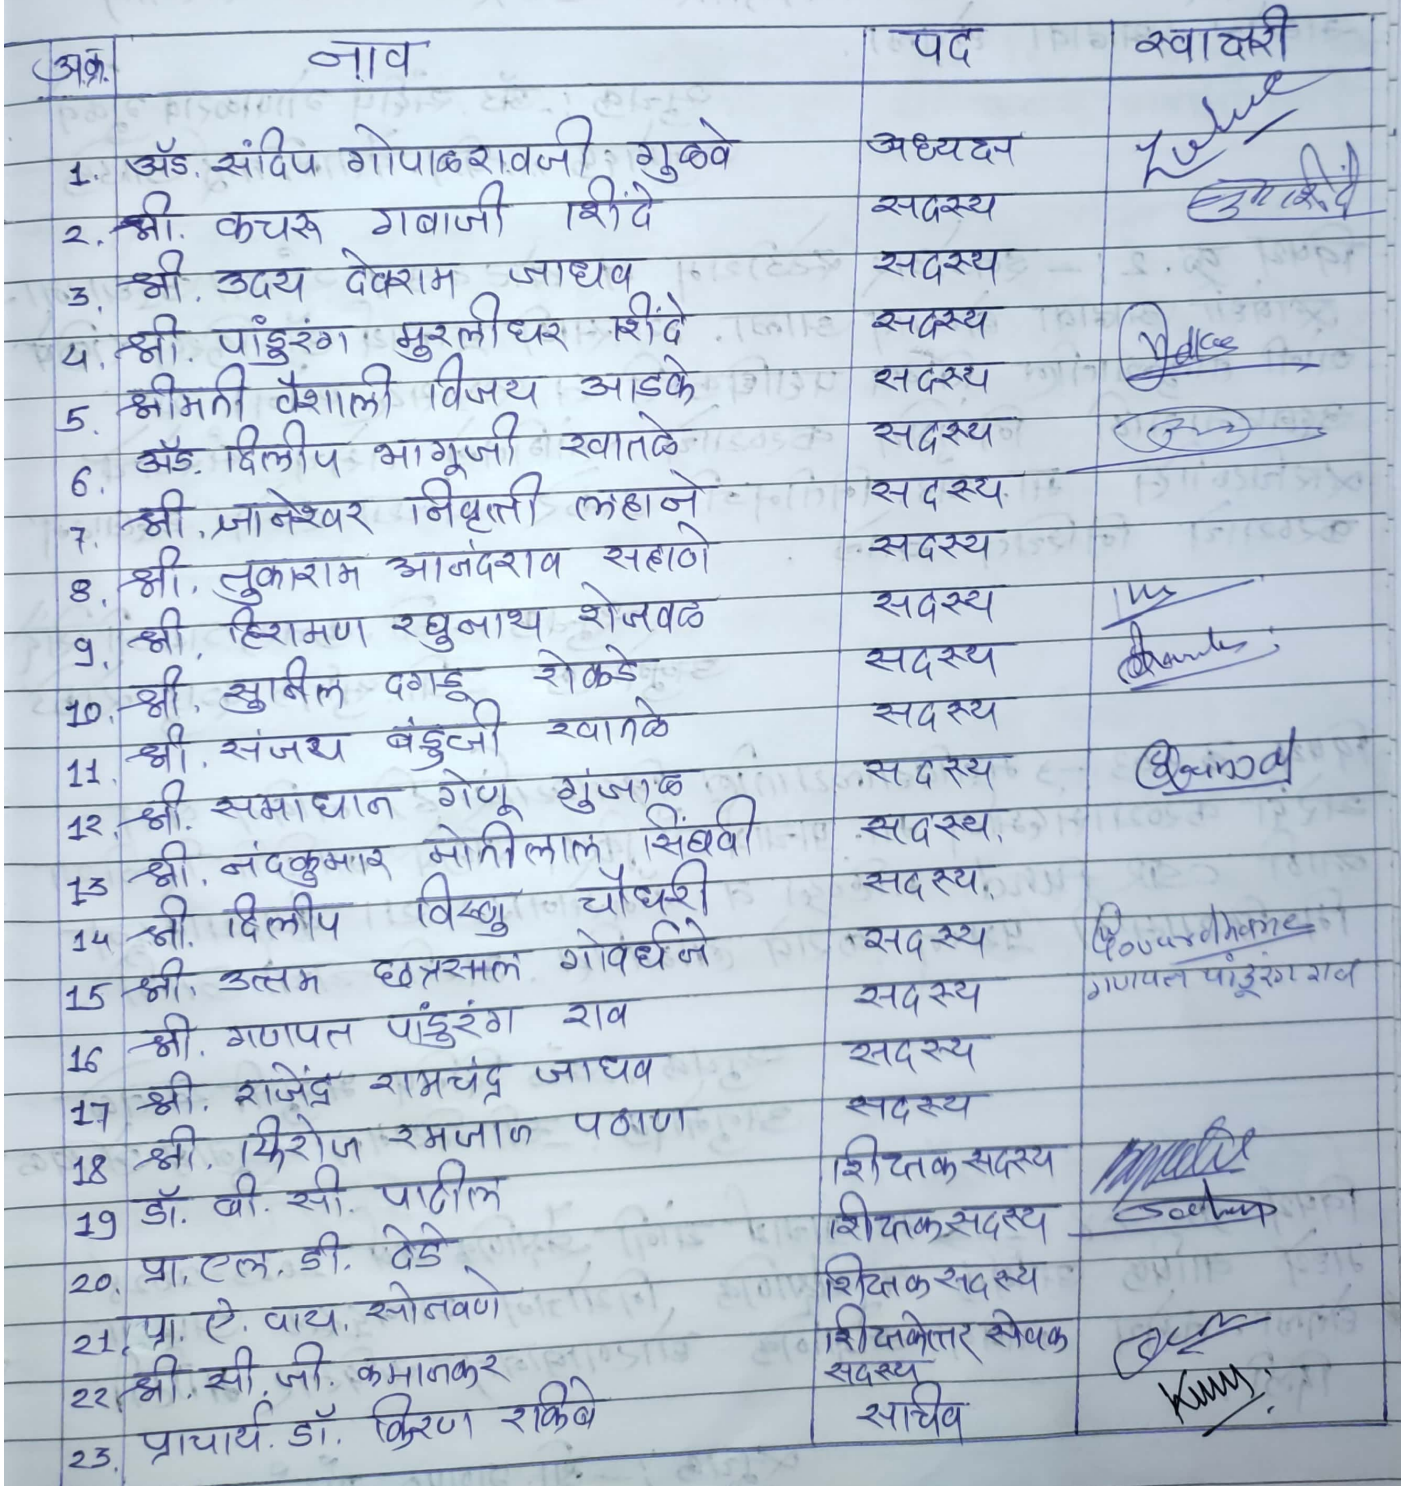 अ.क्र. नाव पद स्वाक्षरी
1. ॲड. संदिप गोपाळरावजी गुळवे अध्यक्ष
2. श्री. कचरू गबाजी शिंदे सदस्य
3. श्री. उदय देवराम जाधव सदस्य
4. श्री. पांडुरंग मुरलीधर शिंदे सदस्य
5. श्रीमती वैशाली विजय आडके सदस्य
6. ॲड. दिलीप भागूजी खातळे सदस्य
7. श्री. ज्ञानेश्वर निवृत्ती लहाने सदस्य.
8. श्री. तुकाराम आनंदराव सहाणे सदस्य
9. श्री. हिरामण रघुनाथ शेजवळ सदस्य
10. श्री. सुनिल दगडू रोकडे सदस्य
11. श्री. संजय बंडुजी खातळे सदस्य
12. श्री. समाधान गेणू गुंजाळ सदस्य
13 श्री. नंदकुमार मोतीलाल सिंघवी सदस्य.
14 श्री. दिलीप विष्णु चौधरी सदस्य.
15 श्री. उत्तम छत्रसाल गोवर्धने सदस्य Govardhane
16 श्री. गणपत पांडुरंग राव सदस्य गणपत पांडूरंग राव
17 श्री. राजेंद्र रामचंद्र जाधव सदस्य
18 श्री. फिरोज रमजान पठाण सदस्य
19 डॉ. बी. सी. पाटील शिक्षक सदस्य
20. प्रा. एल. डी. देडे शिक्षक सदस्य
21. प्रा. ऐ. वाय. सोनवणे शिक्षक सदस्य
22. श्री. सी. जी. कमानकर शिक्षकेत्तर सेवक
सदस्य
23. प्राचार्य. डॉ. किरण रकिबे सचिव